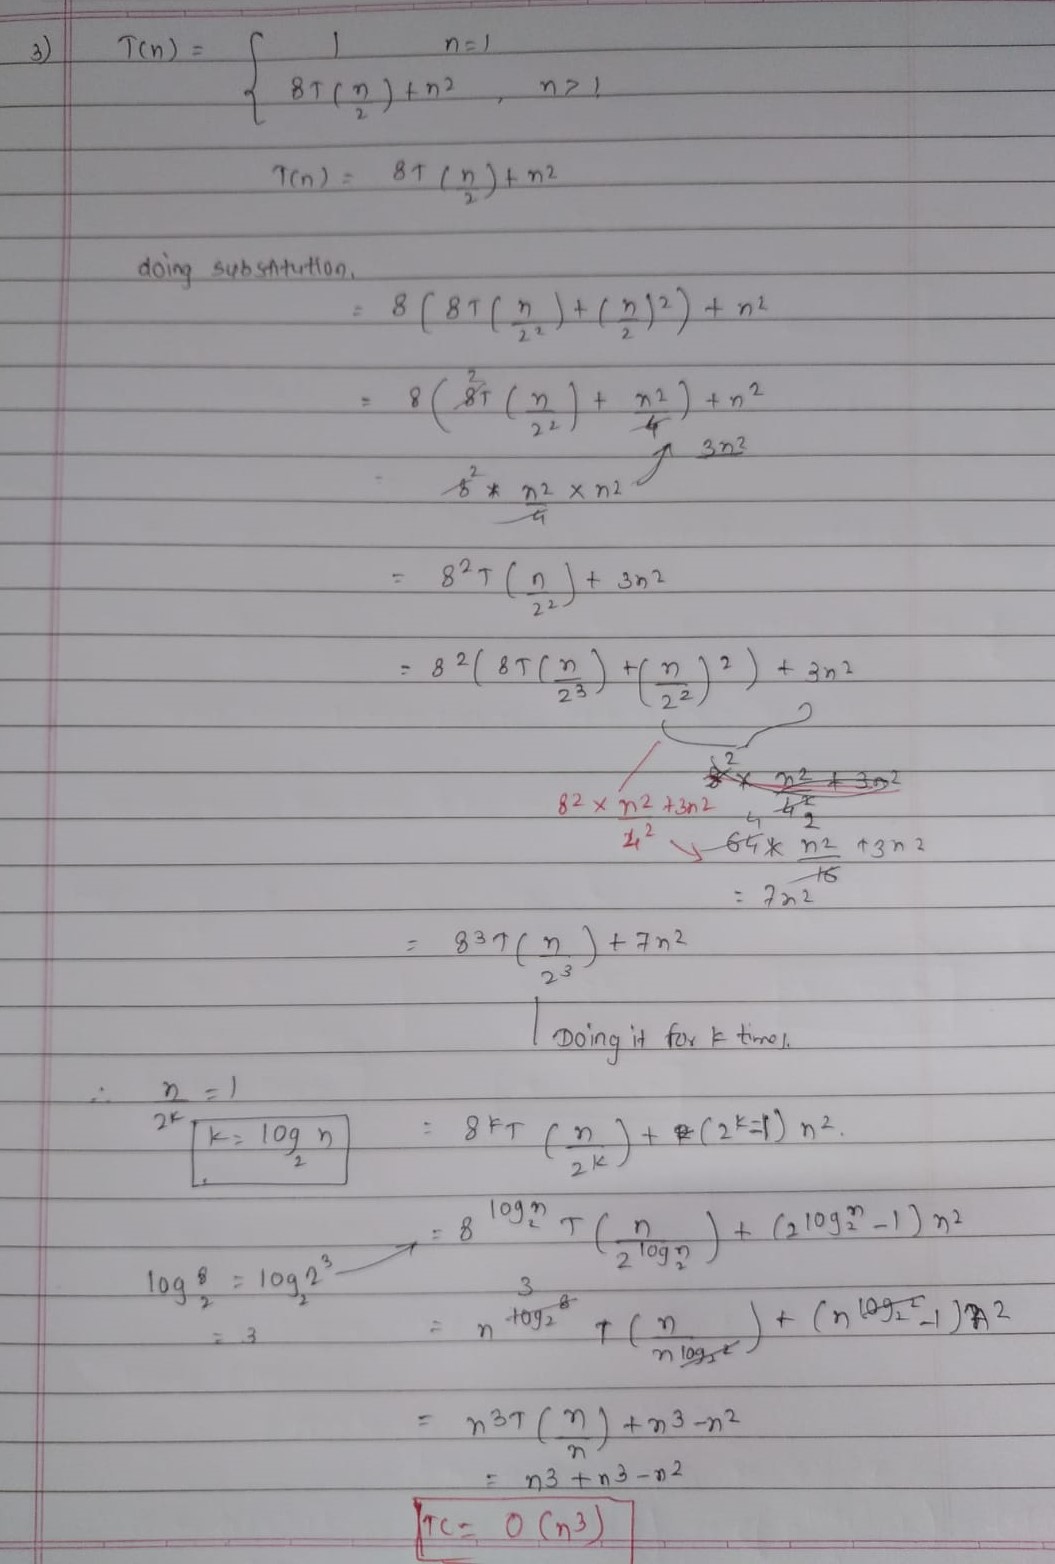 3) T(n) = { 1 n=1
8T(n/2)+n², n>1
T(n) = 8T(n/2)+n²
doing substitution,
= 8(8T(n/2²)+(n/2)²)+n²
= 8(8T(n/2²)+n²/4)+n²
3n²
8² * n²/4 × n²
= 8²T(n/2²)+3n²
= 8²(8T(n/2³)+(n/2²)²)+3n²
8² * n²/4² + 3n²
8² × n²/4² +3n²
64 * n²/16 +3n²
= 7n²
= 8³T(n/2³)+7n²
Doing it for k times.
∴ n/2ᵏ = 1
k = log₂n
= 8ᵏT(n/2ᵏ)+(2ᵏ-1)n².
= 8^(log₂n) T(n/2^(log₂n))+(2^(log₂n)-1)n²
log₂8 = log₂2³
= 3
= n^(log₂8) T(n/n^(log₂2))+(n^(log₂2)-1)n²
3
= n³T(n/n)+n³-n²
= n³+n³-n²
TC = O(n³)